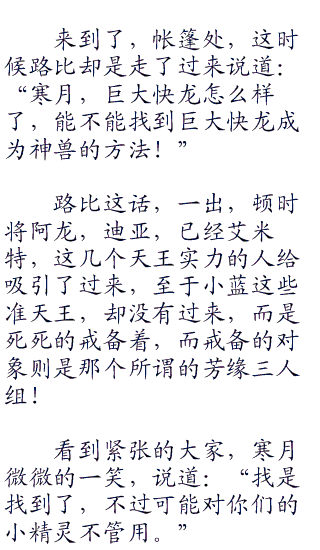 来到了，帐篷处，这时
候路比却是走了过来说道：
“寒月，巨大快龙怎么样
了，能不能找到巨大快龙成
为神兽的方法！”
路比这话，一出，顿时
将阿龙，迪亚，已经艾米
特，这几个天王实力的人给
吸引了过来，至于小蓝这些
准天王，却没有过来，而是
死死的戒备着，而戒备的对
象则是那个所谓的芳缘三人
组！
看到紧张的大家，寒月
微微的一笑，说道：“找是
找到了，不过可能对你们的
小精灵不管用。”